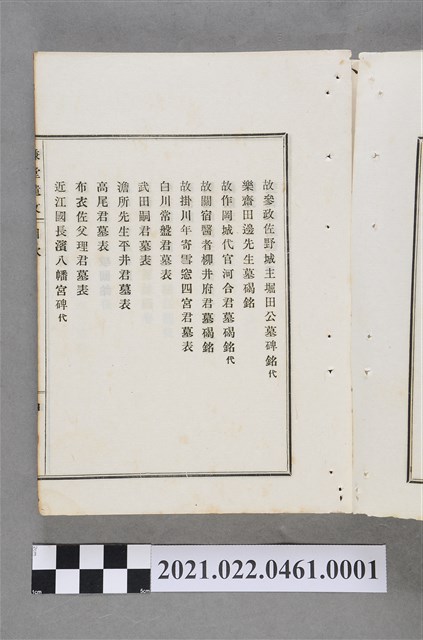 故參政佐野城主堀田公墓碑銘代
樂齋田邊先生墓碣銘
故作岡城代官河合君墓碣銘代
故關宿醫者柳井府君墓碣銘
故掛川年寄雪窓四宮君墓表
白川常盤君墓表
武田嗣君墓表
澹所先生平井君墓表
高尾君墓表
布衣佐父理君墓表
近江國長濱八幡宮碑代
2021.022.0461.0001